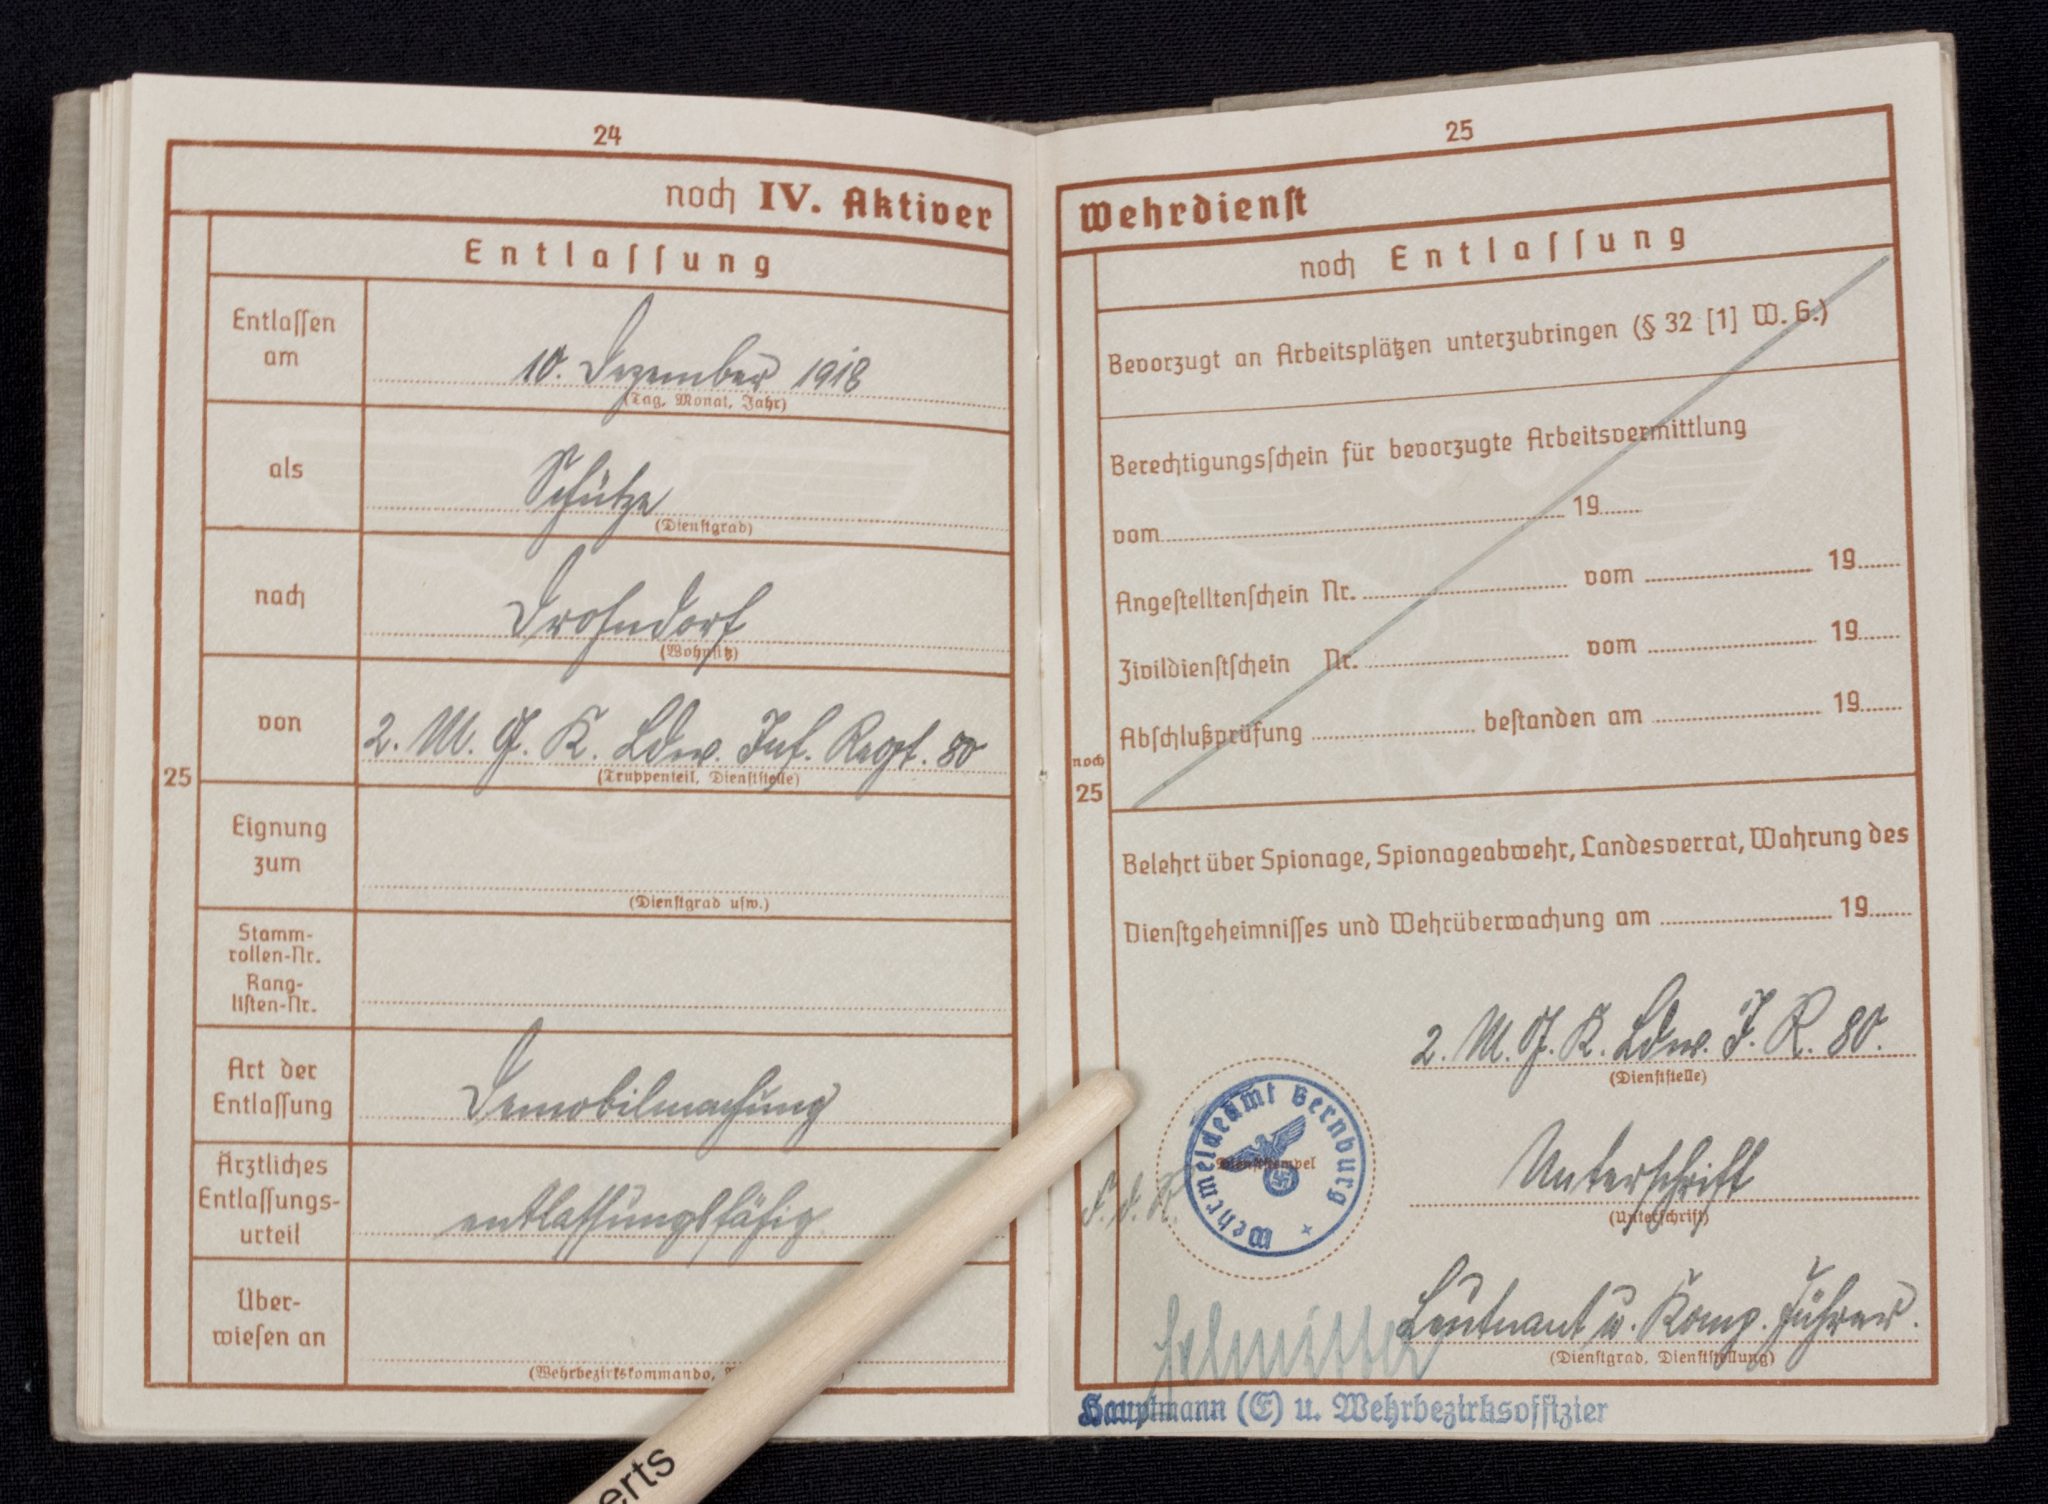 24
noch IV. Aktiver
Entlassung
Entlassen am
10. Dezember 1918
(Tag, Monat, Jahr)
als
Schütze
(Dienstgrad)
nach
Drohndorf
(Wohnsitz)
von
2. M. G. K. Ldw. Inf. Regt. 80
(Truppenteil, Dienststelle)
25
Eignung
zum
(Dienstgrad usw.)
Stamm-
rollen-Nr.
Rang-
listen-Nr.
Art der
Entlassung
Demobilmachung
Ärztliches
Entlassungs-
urteil
entlassungsfähig
Über-
wiesen an
(Wehrbezirkskommando,
25
Wehrdienst
noch Entlassung
Bevorzugt an Arbeitsplätzen unterzubringen (§ 32 [1] W. G.)
Berechtigungsschein für bevorzugte Arbeitsvermittlung
vom 19
Angestelltenschein Nr. vom 19
Zivildienstschein Nr. vom 19
Abschlußprüfung bestanden am 19
noch
25
Belehrt über Spionage, Spionageabwehr, Landesverrat, Wahrung des
Dienstgeheimnisses und Wehrüberwachung am 19
2. M. G. K. Ldw. I. R. 80.
(Dienststelle)
Wehrmeldeamt Bernburg
Dienststempel
F. d. R.
Unterschrift
(Unterschrift)
Leutnant u. Komp. Führer.
(Dienstgrad, Dienststellung)
Hauptmann (E) u. Wehrbezirksoffizier
erts